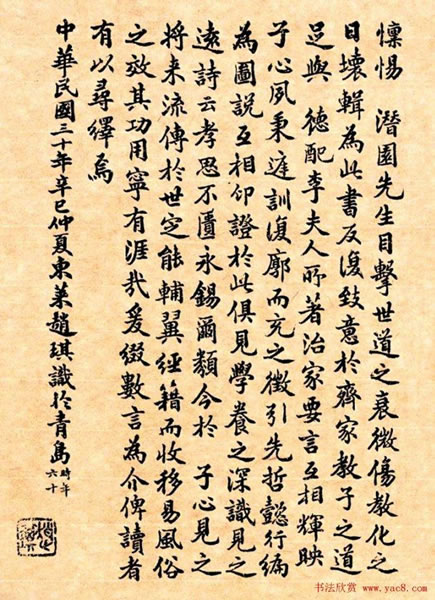 懍惕 潛園先生目擊世道之衰微傷教化之
日壞輯為此書反復致意於齊家教子之道
足與 德配李夫人所著治家要言互相輝映
子心夙秉庭訓復廓而充之徵引先哲懿行編
為圖說互相印證於此俱見學養之深識見之
遠詩云孝思不匱永錫爾類今於 子心見之
将来流傳於世定能輔翼經籍而收移易風俗
之效其功用寧有涯哉爰綴數言為介俾讀者
有以尋繹焉
中華民國三十年辛巳仲夏東萊趙琪識於青島時年六十
书法欣赏 www.yac8.com